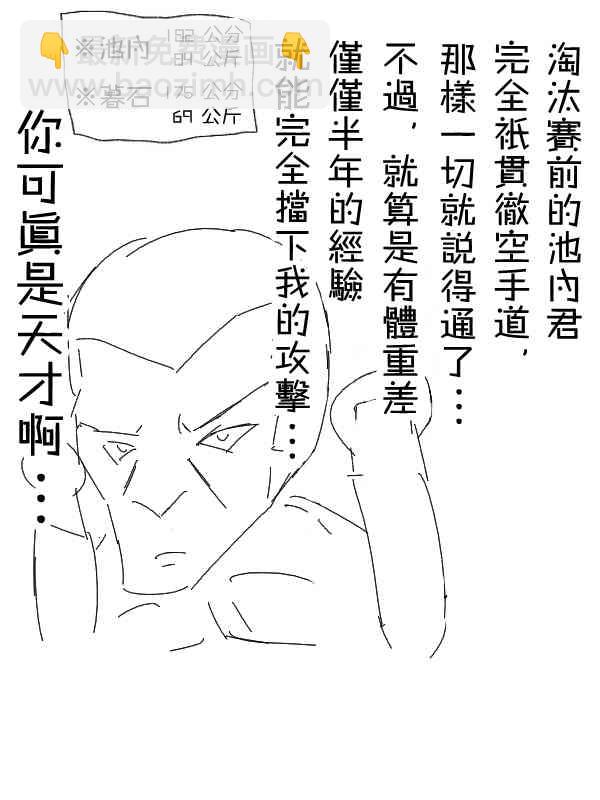 淘汰賽前的池內君
完全祇貫徹空手道，
那樣一切就說得通了…
不過，就算是有體重差
僅僅半年的經驗
就能完全擋下我的攻擊…
※池內 182 公分
公斤
※暮石 175 公分
69 公斤
你可眞是天才啊…
👇最新免費漫畫👇
www.baozimh.com